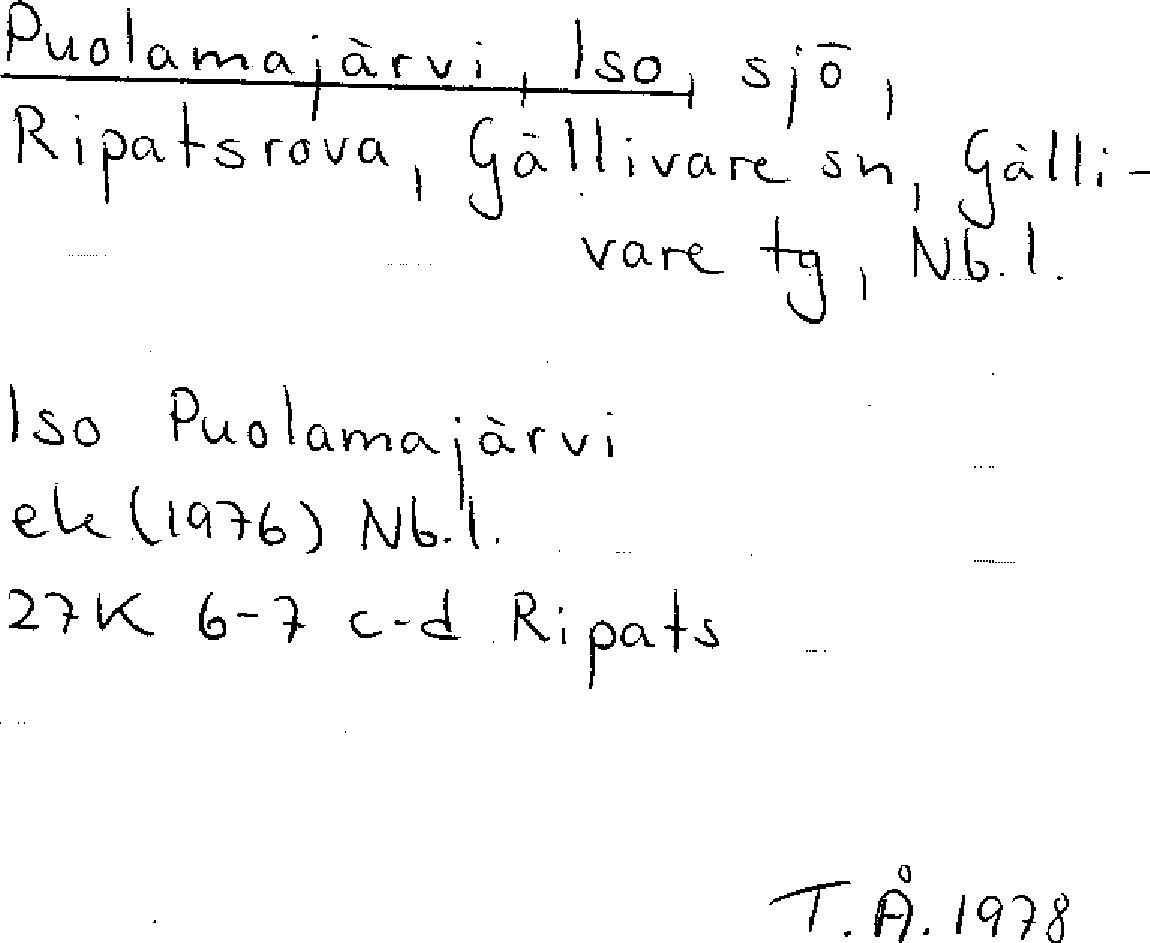 Puolamajärvi, Iso, sjö,
Ripatsrova, Gällivare sn, Gälli-
vare tg, Nb.l.
Iso Puolamajärvi
ek (1976) Nb.l.
27K 6-7 c-d Ripats
T.Å. 1978